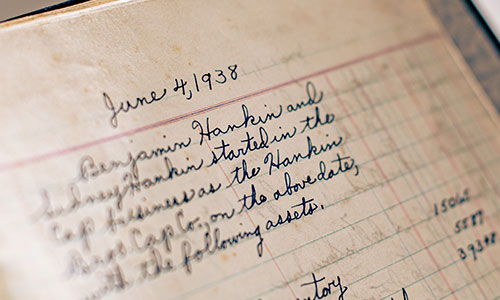 June 4, 1938
Benjamin Hankin and
Sidney Hankin started in the
Cap business as the Hankin
Bros Cap Co, on the above date,
with the following assets.
15065
5587